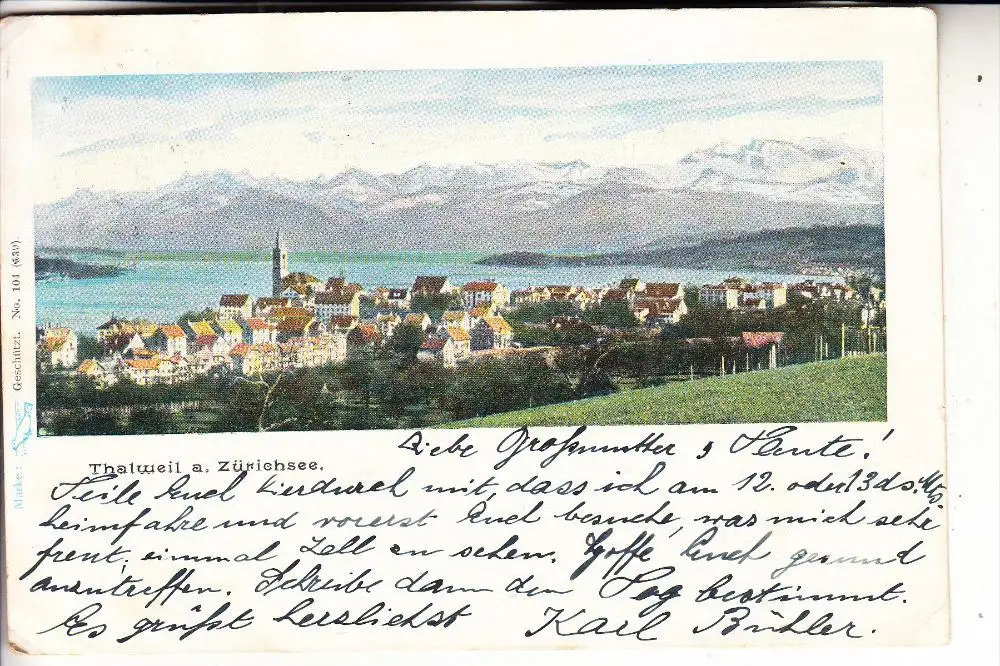 Liebe Großmutter, Tante!
Thalweil a. Zürichsee.
Teile Euch hierdurch mit, dass ich am 12. oder 13 ds. Mts.
heimfahre und vorerst Euch besuche, was mich sehr
freut, einmal Zell zu sehen. Hoffe Euch gesund
anzutreffen. Schreibe dann den Tag bestimmt.
Es grüßt herzlichst Karl Bühler.
Geschützt. No. 104
Marke: